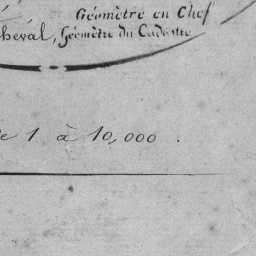 Géomètre en Chef
cheval, Géomètre du Cadastre
de 1 à 10,000.